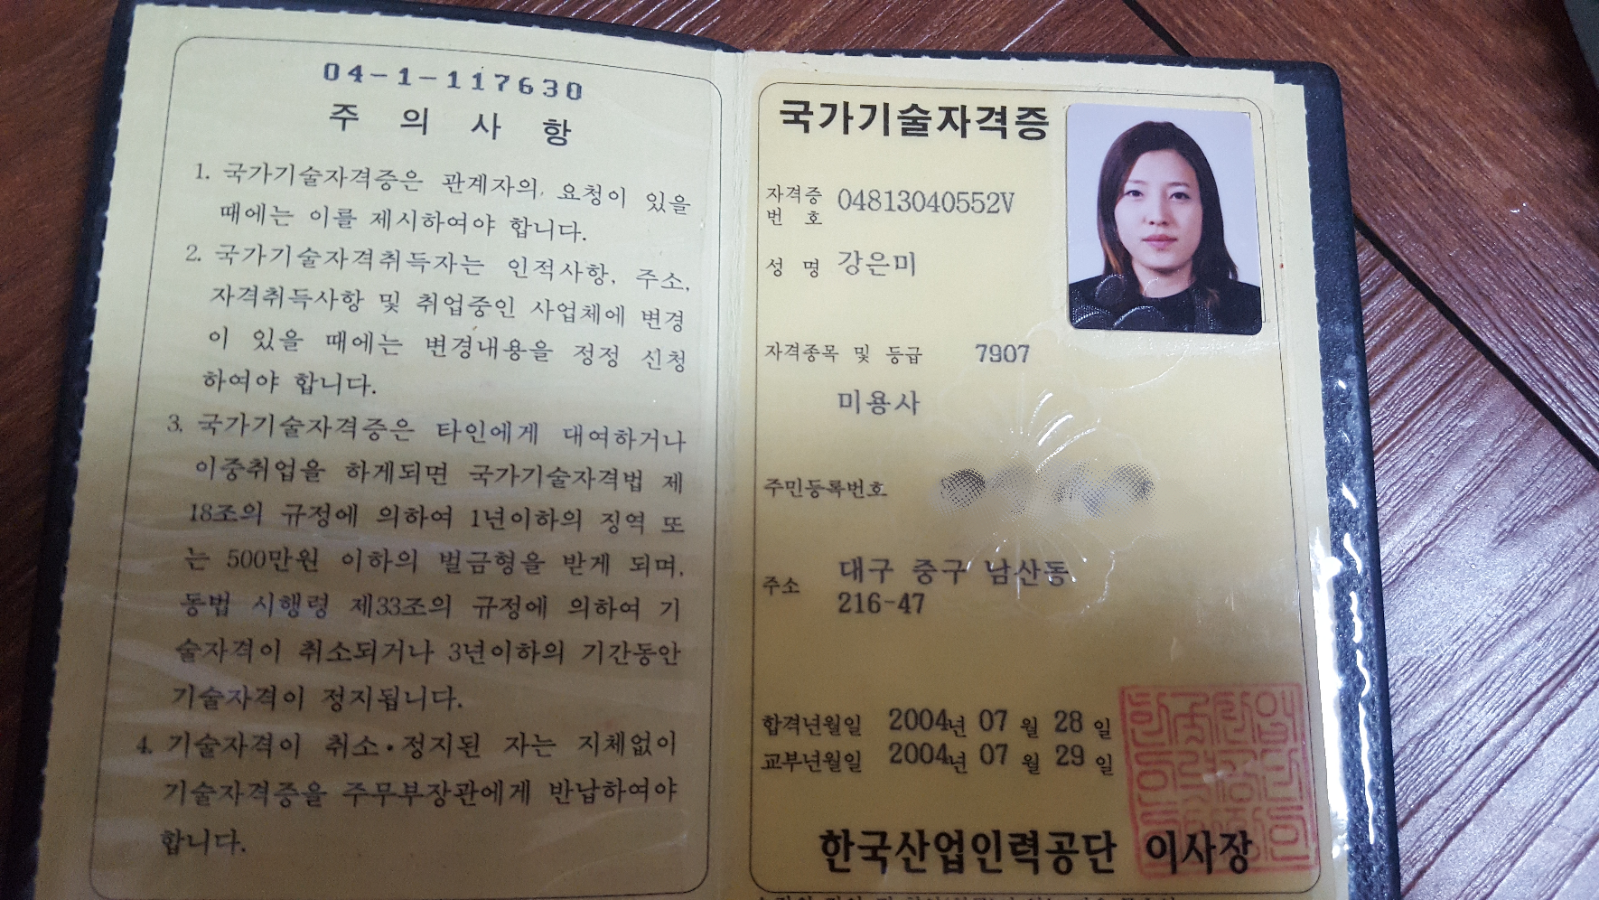 04-1-117630
주 의 사 항
1. 국가기술자격증은 관계자의 요청이 있을
때에는 이를 제시하여야 합니다.
2. 국가기술자격취득자는 인적사항, 주소,
자격취득사항 및 취업중인 사업체에 변경
이 있을 때에는 변경내용을 정정 신청
하여야 합니다.
3. 국가기술자격증은 타인에게 대여하거나
이중취업을 하게되면 국가기술자격법 제
18조의 규정에 의하여 1년이하의 징역 또
는 500만원 이하의 벌금형을 받게 되며,
동법 시행령 제33조의 규정에 의하여 기
술자격이 취소되거나 3년이하의 기간동안
기술자격이 정지됩니다.
4. 기술자격이 취소·정지된 자는 지체없이
기술자격증을 주무부장관에게 반납하여야
합니다.
국가기술자격증
자격증
번 호 04813040552V
성 명 강은미
자격종목 및 등급 7907
미용사
주민등록번호
주소 대구 중구 남산동
216-47
합격년월일 2004년 07 월 28 일
교부년월일 2004년 07 월 29 일
한국산업인력공단 이사장